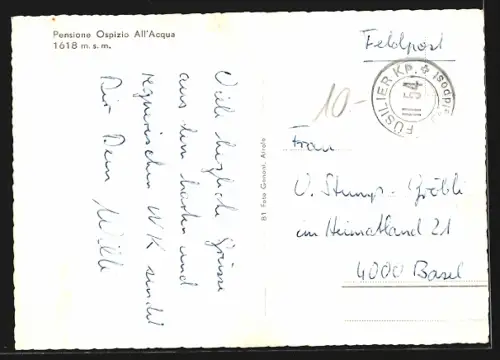 Pensione Ospizio All'Acqua
1618 m.s.m.
Viele herzliche Grüsse
aus dem und
regnerischen WK sendet
Dir Dein Willi
81 Foto Genasi, Airolo
Feldpost
10-
FÜSILIER KP. II 54 Feldpost
Frau
V. Stump-Gröbli
im Heimatland 21
4000 Basel